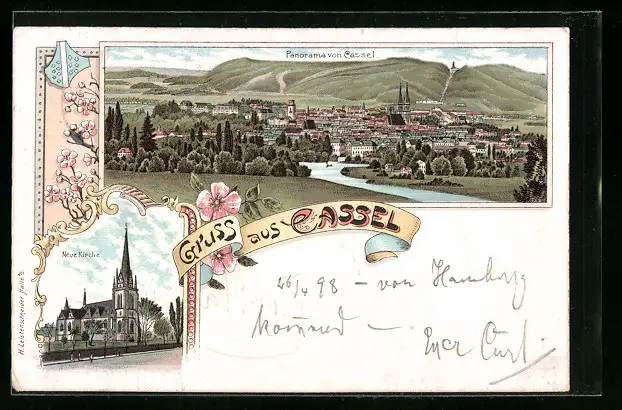 Panorama von Cassel.
Neue Kirche.
Gruss aus CASSEL
26/4 98 – von Hamburg
kommend –
Euer Curt.
H. Leistenschneider, Halle a/S.